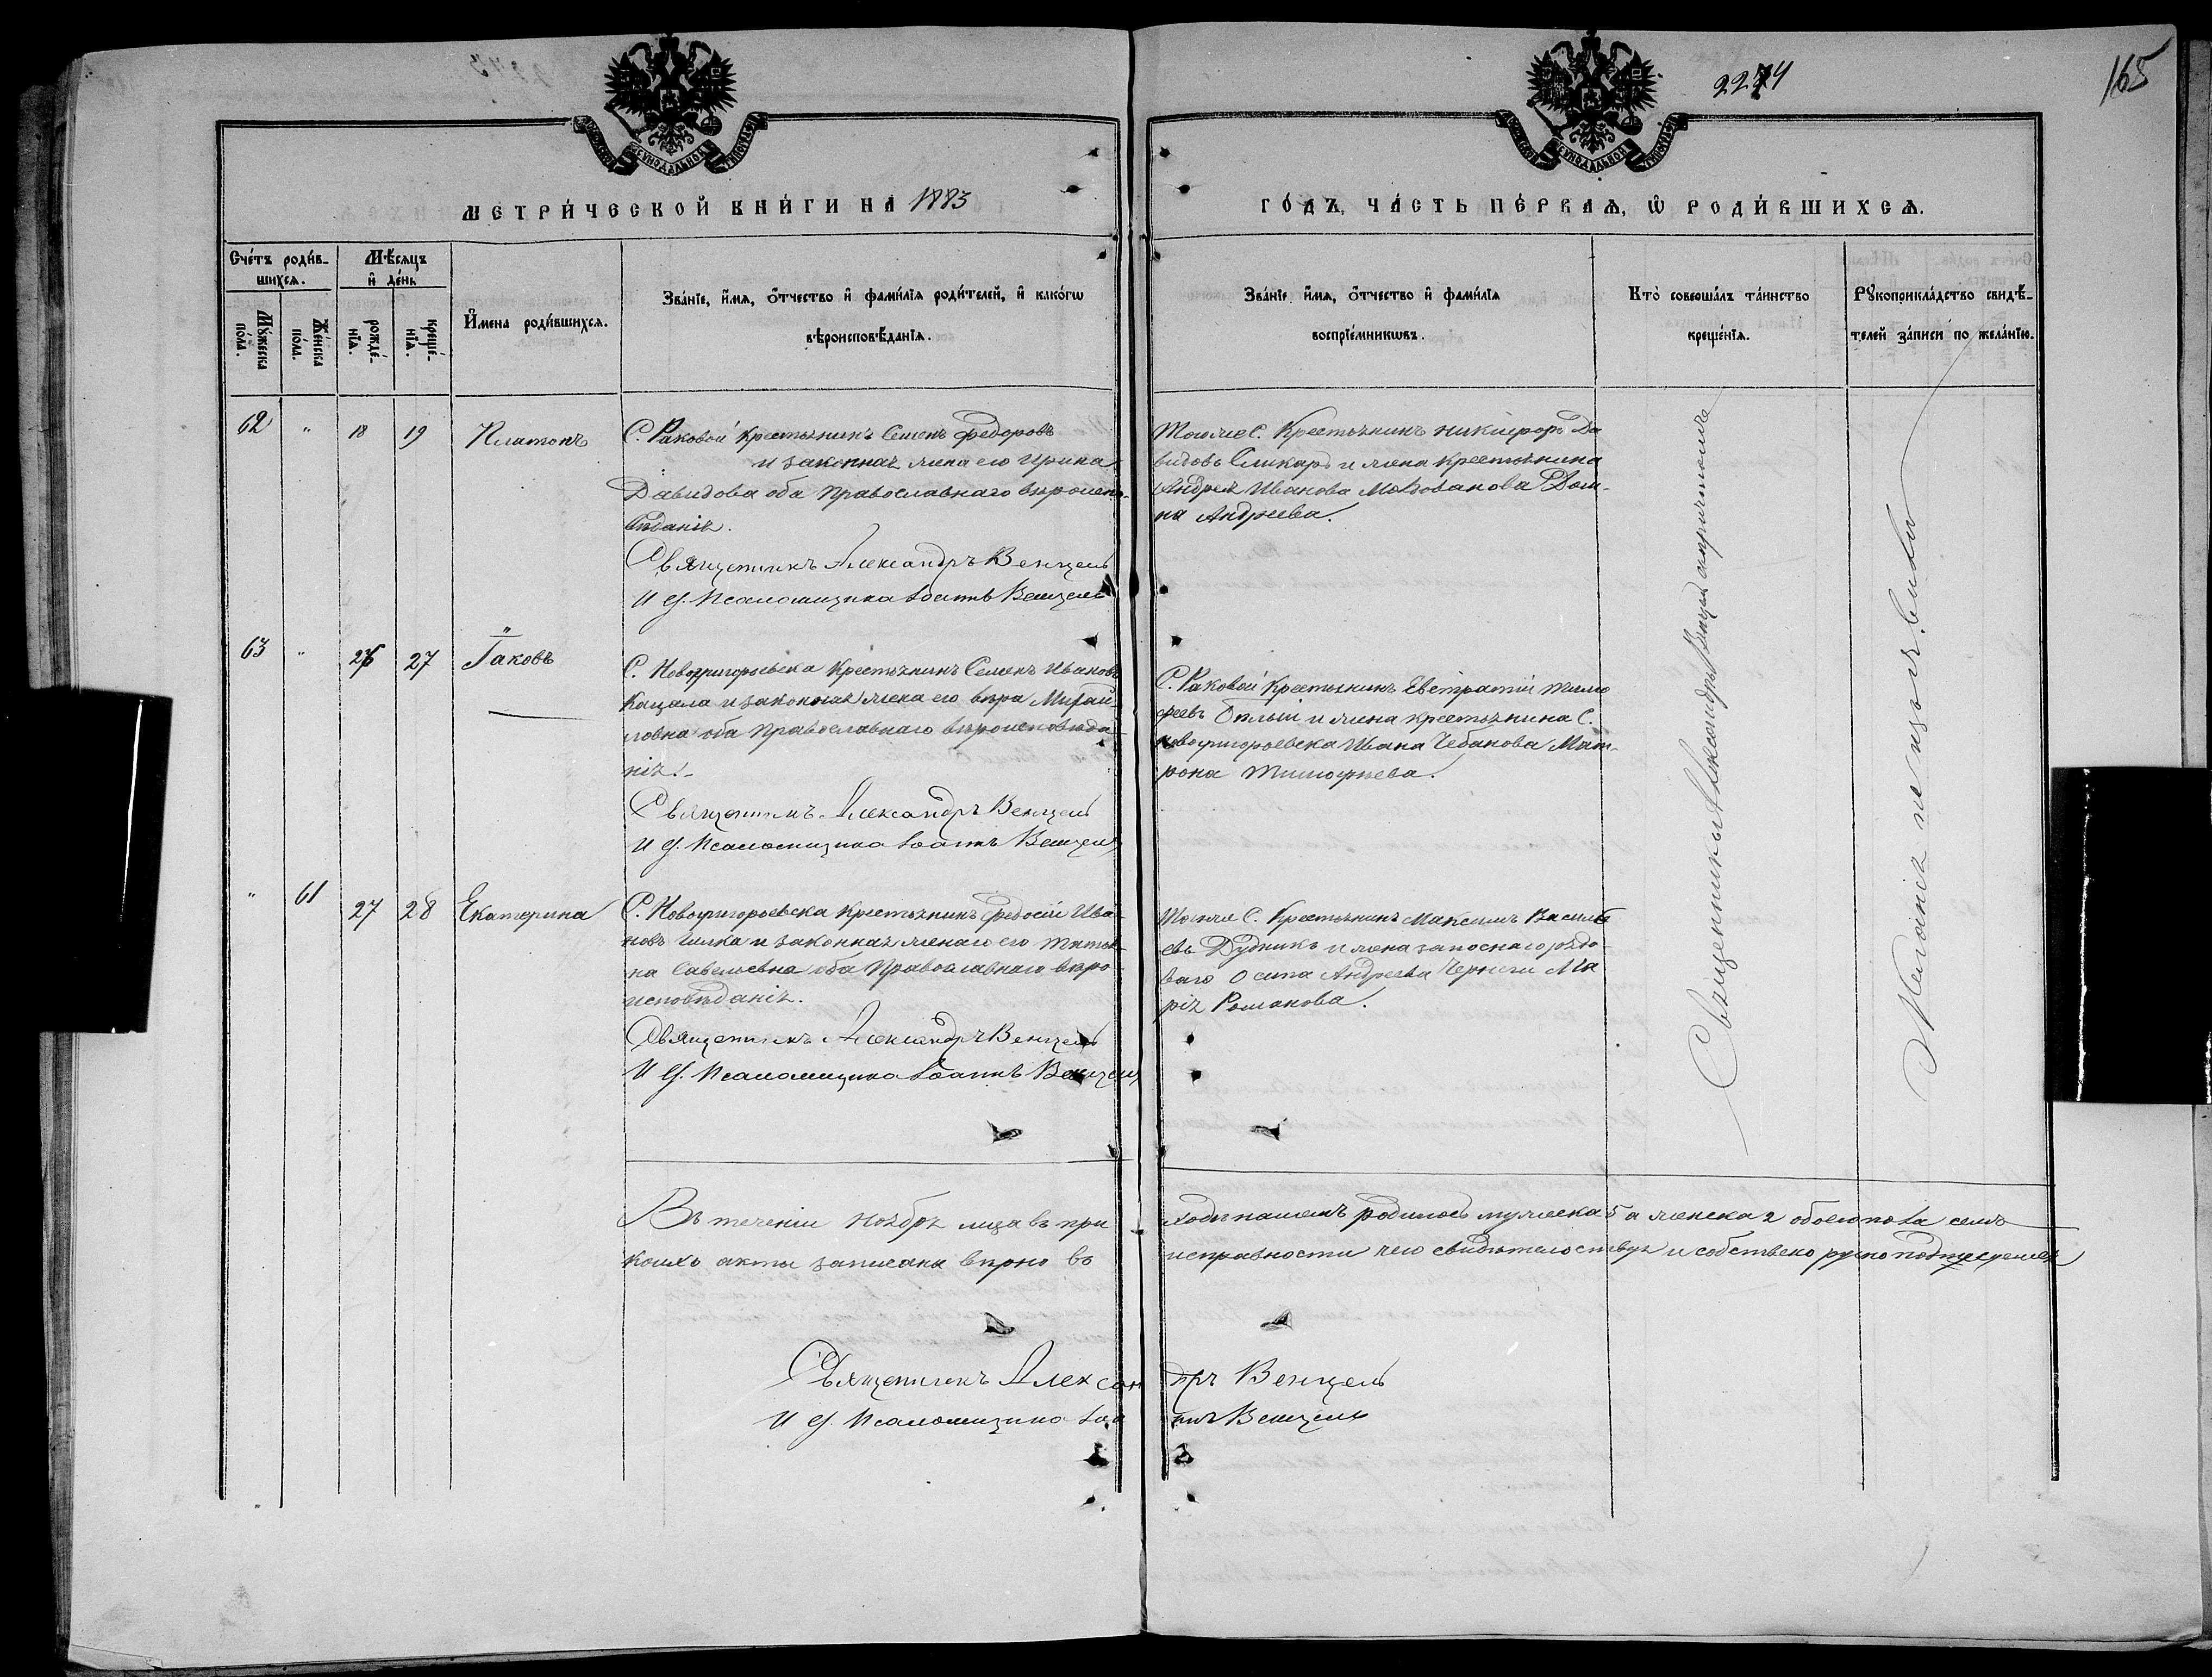 2274
165
МЕТРИ́ЧЕСКОЙ КНИ́ГИ НА 1883
ГО́ДЪ, ЧА́СТЬ ПЕ́РВАѦ, Ѡ РОДИ́ВШИХСѦ.
Сче́тъ роди́в-
шихсѧ.
Мѣ́сѧцъ
и҆ де́нь
Мꙋ́жеска
по́ла.
Же́нска
по́ла.
рожде́-
нїѧ.
креще́-
нїѧ.
И҆мена роди́вшихсѧ.
Зва́нїе, и҆́мѧ, ѻ҆́тчество и҆ фами́лїѧ роди́телей, и҆ како́гѡ
вѣроисповѣ́данїѧ.
Зва́нїе, и҆́мѧ, ѻ҆́тчество и҆ фами́лїѧ
воспрїе́мникѡвъ.
Кто̀ соверша́лъ та́инство
креще́нїѧ.
Рꙋкоприкла́дство свидѣ́-
телей за́писи по жела́нїю.
62 " 18 19 Платонъ
С. Раковой Крестьянинъ Семенъ Федоровъ
и законная жена его Ирина
Давидова оба Православнаго вѣроиспо-
вѣданія.
Священникъ Александръ Венцель
И д. Псаломщика Іоаннъ Венцель
Тогоже С. Крестьянинъ Никифоръ Да
видовъ и жена крестьянина
Андрея Иванова Молдованова Дом-
на Андреева.
63 " 26 27 Іаковъ
С. Новогригорьевска Крестьянинъ Семенъ Ивановъ
Кацала и законная жена его вѣра Михай-
ловна оба Православнаго вѣроисповѣда
нія.
Священникъ Александръ Венцель
И д. Псаломщика Іоаннъ Венцель
С. Раковой Крестьянинъ Евстратій Тимо
феевъ Бѣлый и жена крестьянина С.
Новогригорьевска Ивана Чебанова Мат-
рона Тимофеева.
" 61 27 28 Екатерина
С. Новогригорьевска Крестьянинъ Федосій Ива-
новъ Гилка и законная женаго его Татья-
на Савельевна оба Православнаго вѣро-
исповѣданія.
Священникъ Александръ Венцель
И д. Псаломщика Іоаннъ Венцель
Тогоже С. Крестьянинъ Максимъ Василь
евъ Дудникъ и жена запаснаго рядо-
ваго Осипа Андреева Чернеги Ма
рія Романова.
Священникъ Александръ Венцель
Желанія не изъяв.
Въ теченіи Ноября мца въ при
ходѣ нашемъ родилось мужеска 5 а женска 2 обоего пола семь
коихъ акты записаны вѣрно въ
исправности чего свидѣтельствуя и собствено ручно подписуемся
Священникъ Александръ Венцель
И д. Псаломщика Іоаннъ Венцель